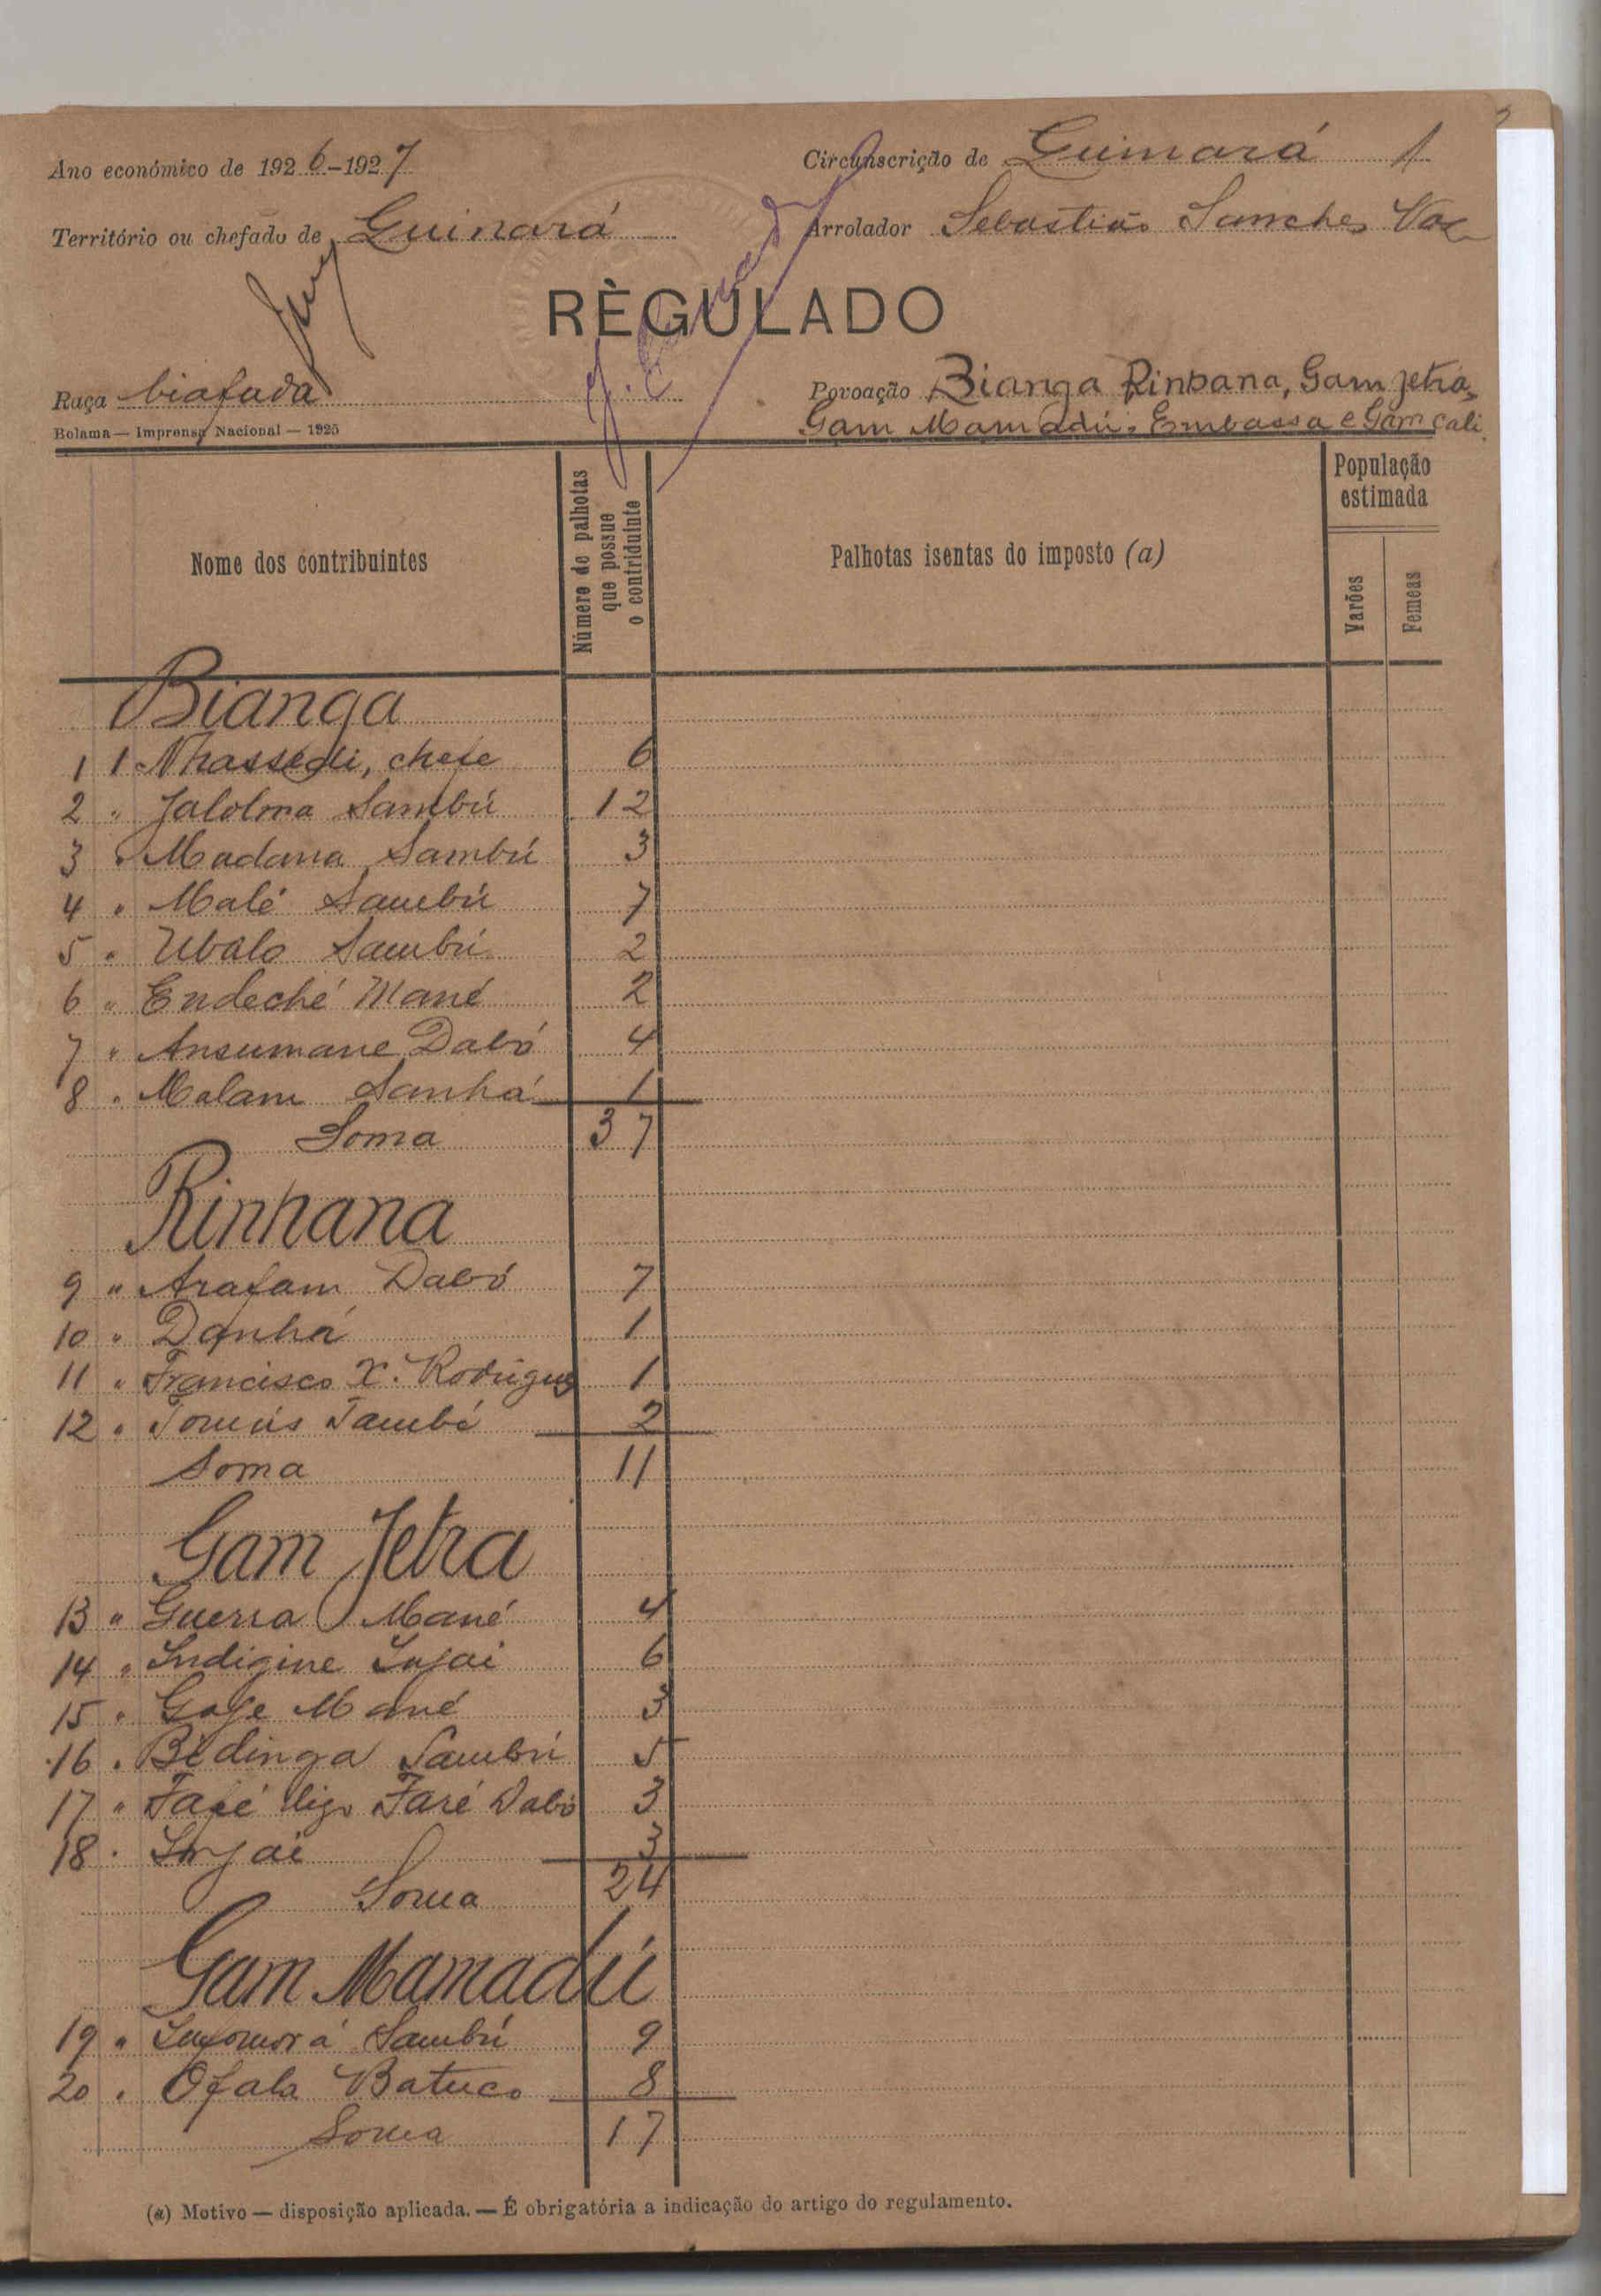 Ano económico de 1926-1927
Circunscrição de Guinará 1
Território ou chefado de Guinará
Arrolador Sebastião Sanches Vaz
RÈGULADO
Raça biafada
Povoação Bianga Rinhana, Gam Jetra,
Gam Mamadú, Embassa e Gam Cali
Bolama — Imprensa Nacional — 1925
Nome dos contribuintes
Número de palhotas
que possue
o contriduinte
Palhotas isentas do imposto (a)
População
estimada
Varões
Femeas
Bianga
1 1 Nhassedi, chefe 6
2 " Jalolma Sambú 12
3 " Madana Sambú 3
4 " Malé Sambú 7
5 " Ubalo Sambú 2
6 " Endeché Mané 2
7 " Ansumane Dabó 4
8 " Malam Sanhá 1
Soma 37
Rinhana
9 " Arafam Dabó 7
10 " Danhá 1
11 " Francisco X. Rodrigues 1
12 " Tomás Tambá 2
Soma 11
Gam Jetra
13 " Guerra Mané 4
14 " Indigine Injai 6
15 " Gage Mané 3
16 " Bedinga Sambú 5
17 " Faré Dabó 3
18 " Injai 3
Soma 24
Gam Mamadú
19 " Sambú 9
20 " Ofala Batuco 8
Soma 17
(a) Motivo — disposição aplicada. — É obrigatória a indicação do artigo do regulamento.